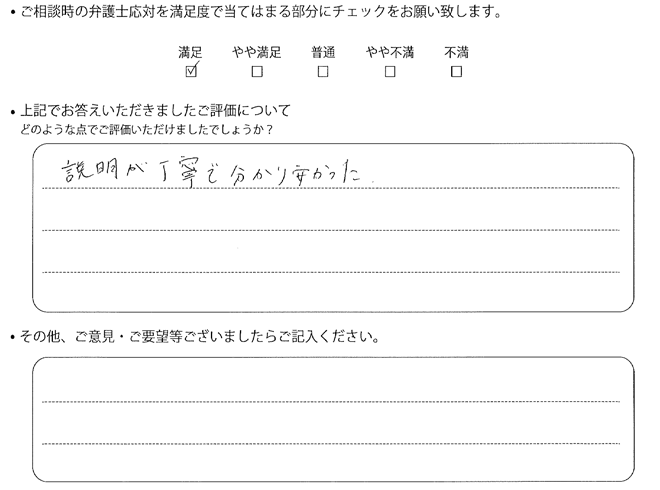 • ご相談時の弁護士応対を満足度で当てはまる部分にチェックをお願い致します。
満足 やや満足 普通 やや不満 不満
☑ □ □ □ □
• 上記でお答えいただきましたご評価について
どのような点でご評価いただけましたでしょうか？
説明が丁寧で分かり安かった.
• その他、ご意見・ご要望等ございましたらご記入ください。